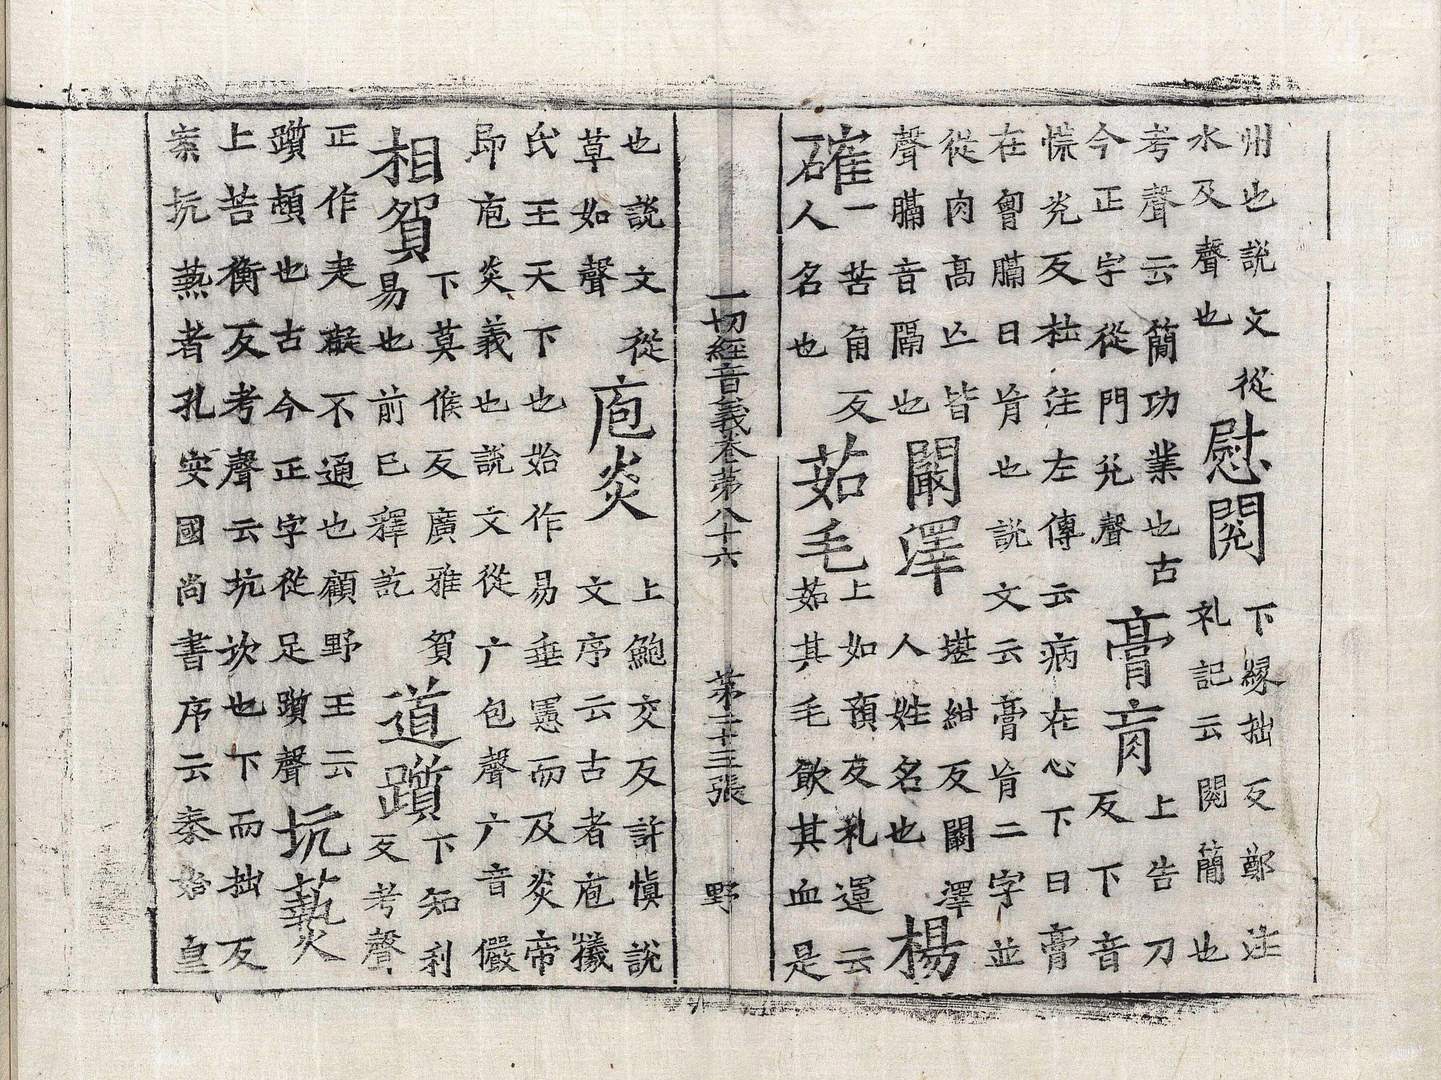 州也說文從
水及聲也
慰閱
下緣拙反鄭注
礼記云閱簡也
考聲云簡功業也古
今正字從門兊聲
膏肓
上告刀
反下音
慌光反杜注左傳云病在心下曰膏
在胷膈曰肓也說文云膏肓二字並
從肉高亡皆
聲膈音隔也
闞澤
堪紺反闞澤
人姓名也
楊
確
一苦角反
人名也
茹毛
上如預反礼運云
茹其毛飲其血是
一切經音義卷苐八十六 苐二十三張 野
也說文從
草如聲
庖炎
上鮑交反許慎說
文序云古者庖犧
氏王天下也始作易垂憲而及炎帝
即庖炎義也說文從广包聲广音儼
相貿
下莫候反廣雅貿
易也前已釋訖
道躓
下知利
反考聲
正作疐礙不通也顧野王云
躓頓也古今正字從足躓聲
坑爇
上苦衡反考聲云坑坎也下而拙反
案坑爇者孔安國尚書序云秦始皇